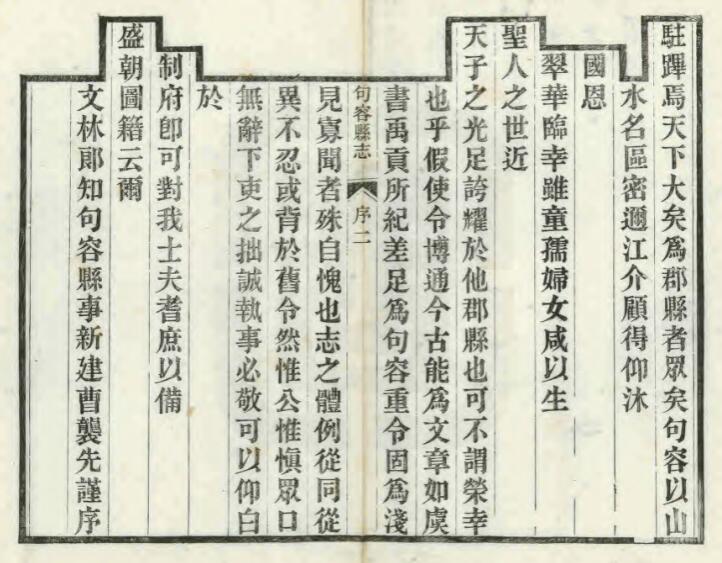 駐蹕焉天下大矣為郡縣者眾矣句容以山
水名區密邇江介顧得仰沐
國恩
翠華臨幸雖童孺婦女咸以生
聖人之世近
天子之光足誇耀於他郡縣也可不謂榮幸
也乎假使令博通今古能為文章如虞
書禹貢所紀差足為句容重令固為淺
句容縣志
序二
見寡聞者殊自愧也志之體例從同從
異不忍或背於舊令然惟公惟慎眾口
無辭下吏之拙誠執事必敬可以仰白
於
制府卽可對我士夫耆庶以備
盛朝圖籍云爾
文林郎知句容縣事新建曹襲先謹序